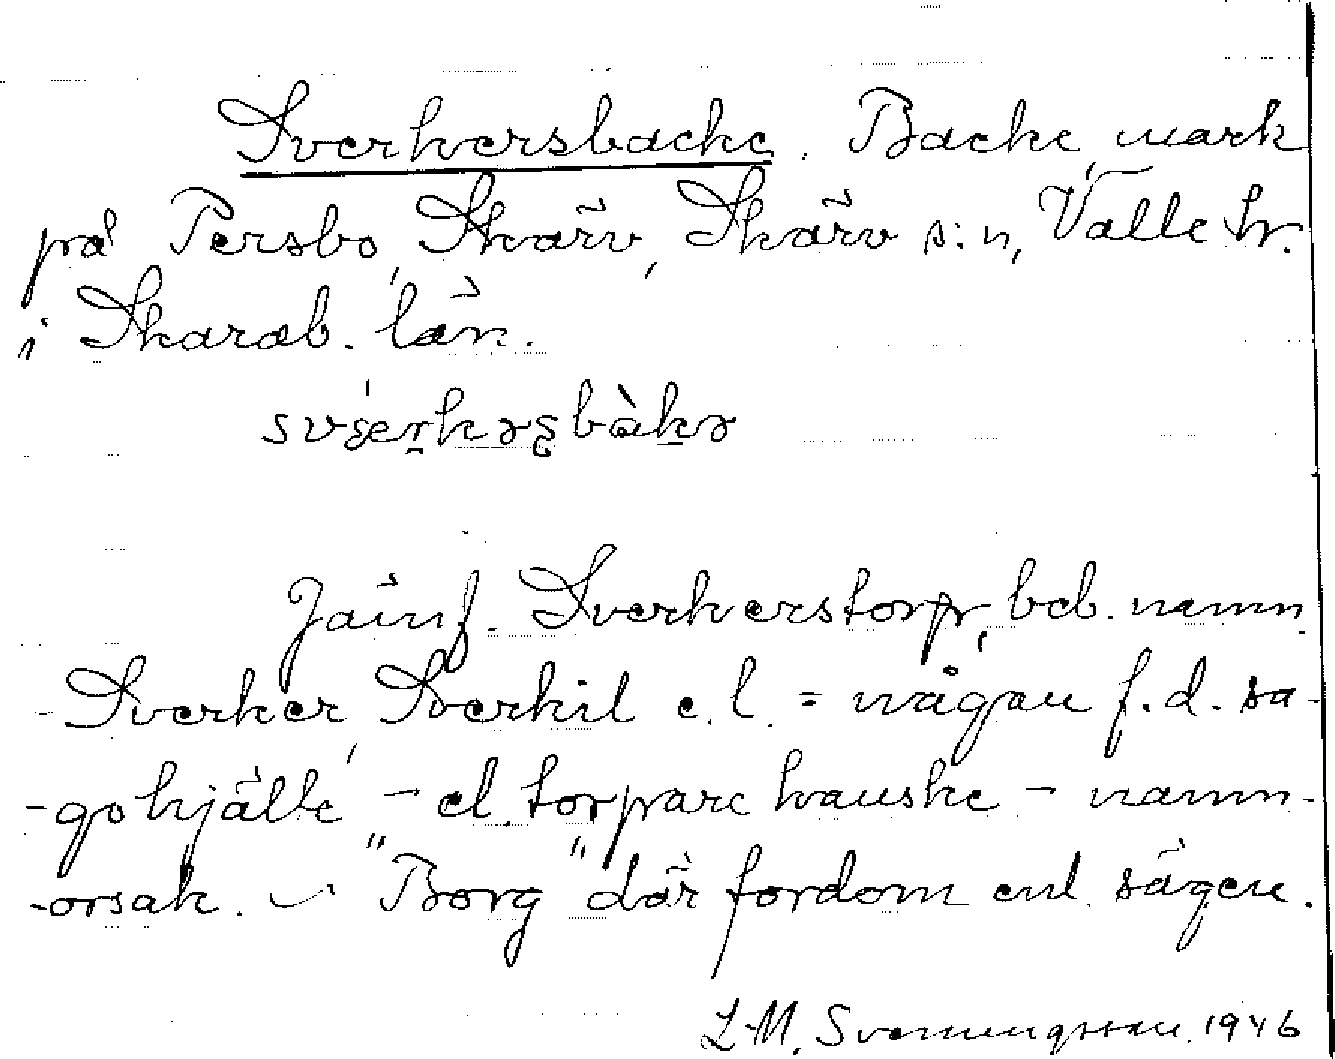 Sverkersbacke. Backe, mark
på Persbo, Skärv, Skärv s:n, Valle hr.
i Skarab. län.
Jämf. Sverkerstorp, beb. namn
- Sverker, Sverkil e.l. = någon f.d. sa-
-gohjälte - el. torpare kanske - namn-
-orsak. - "Borg" där fordom enl. sägen.
L-M. Svenungsson. 1946